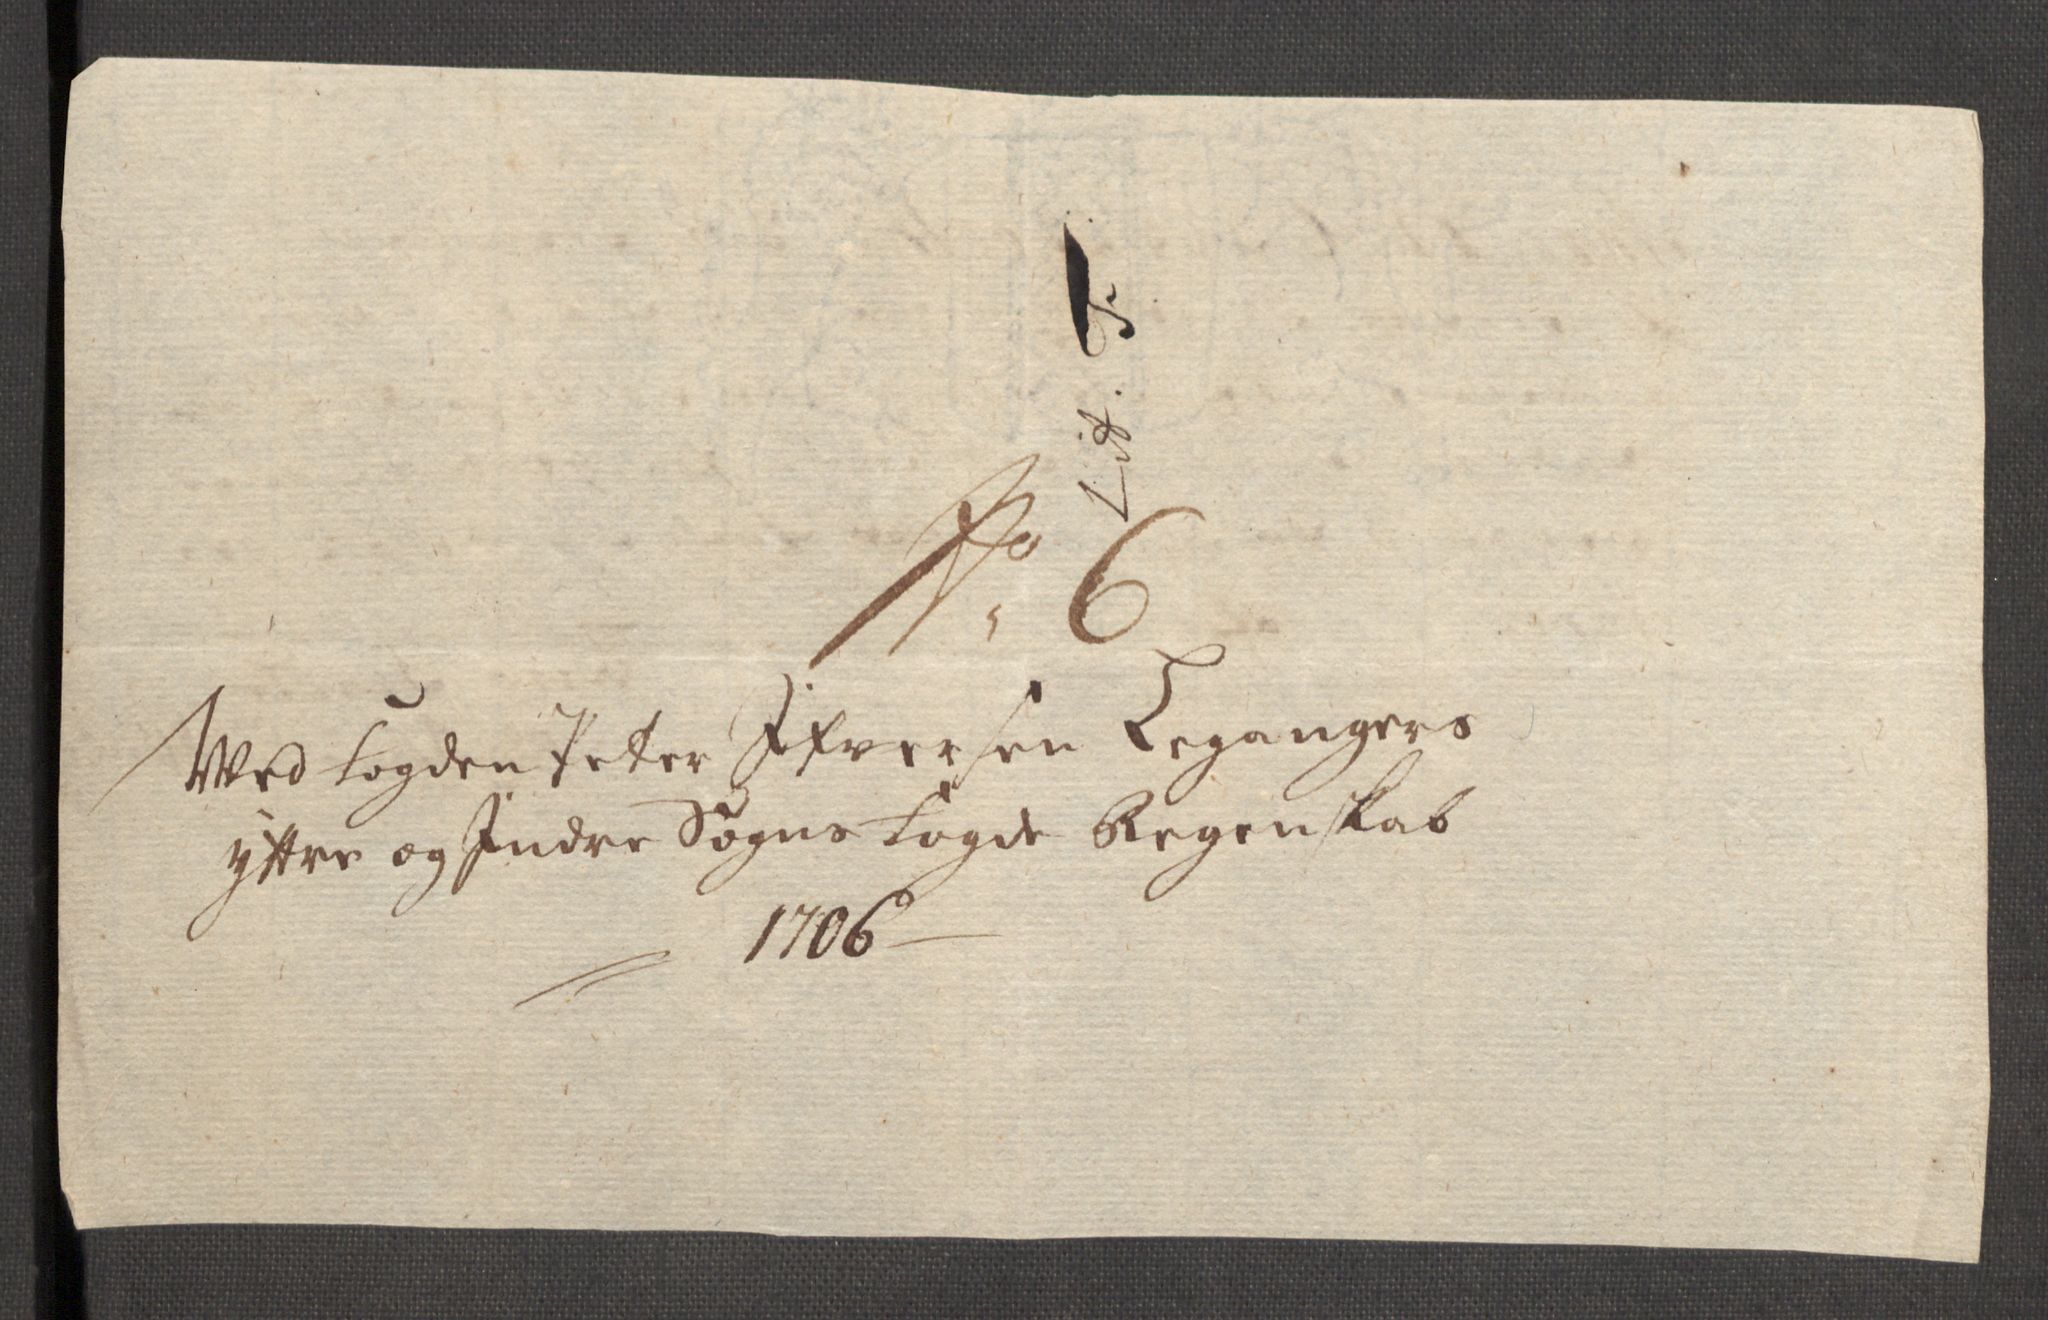 Lit. F.
No. 6
Wed fogden Peter Ifversen Legangers
yttre og Indre Sogns fogde Regenskab
1706